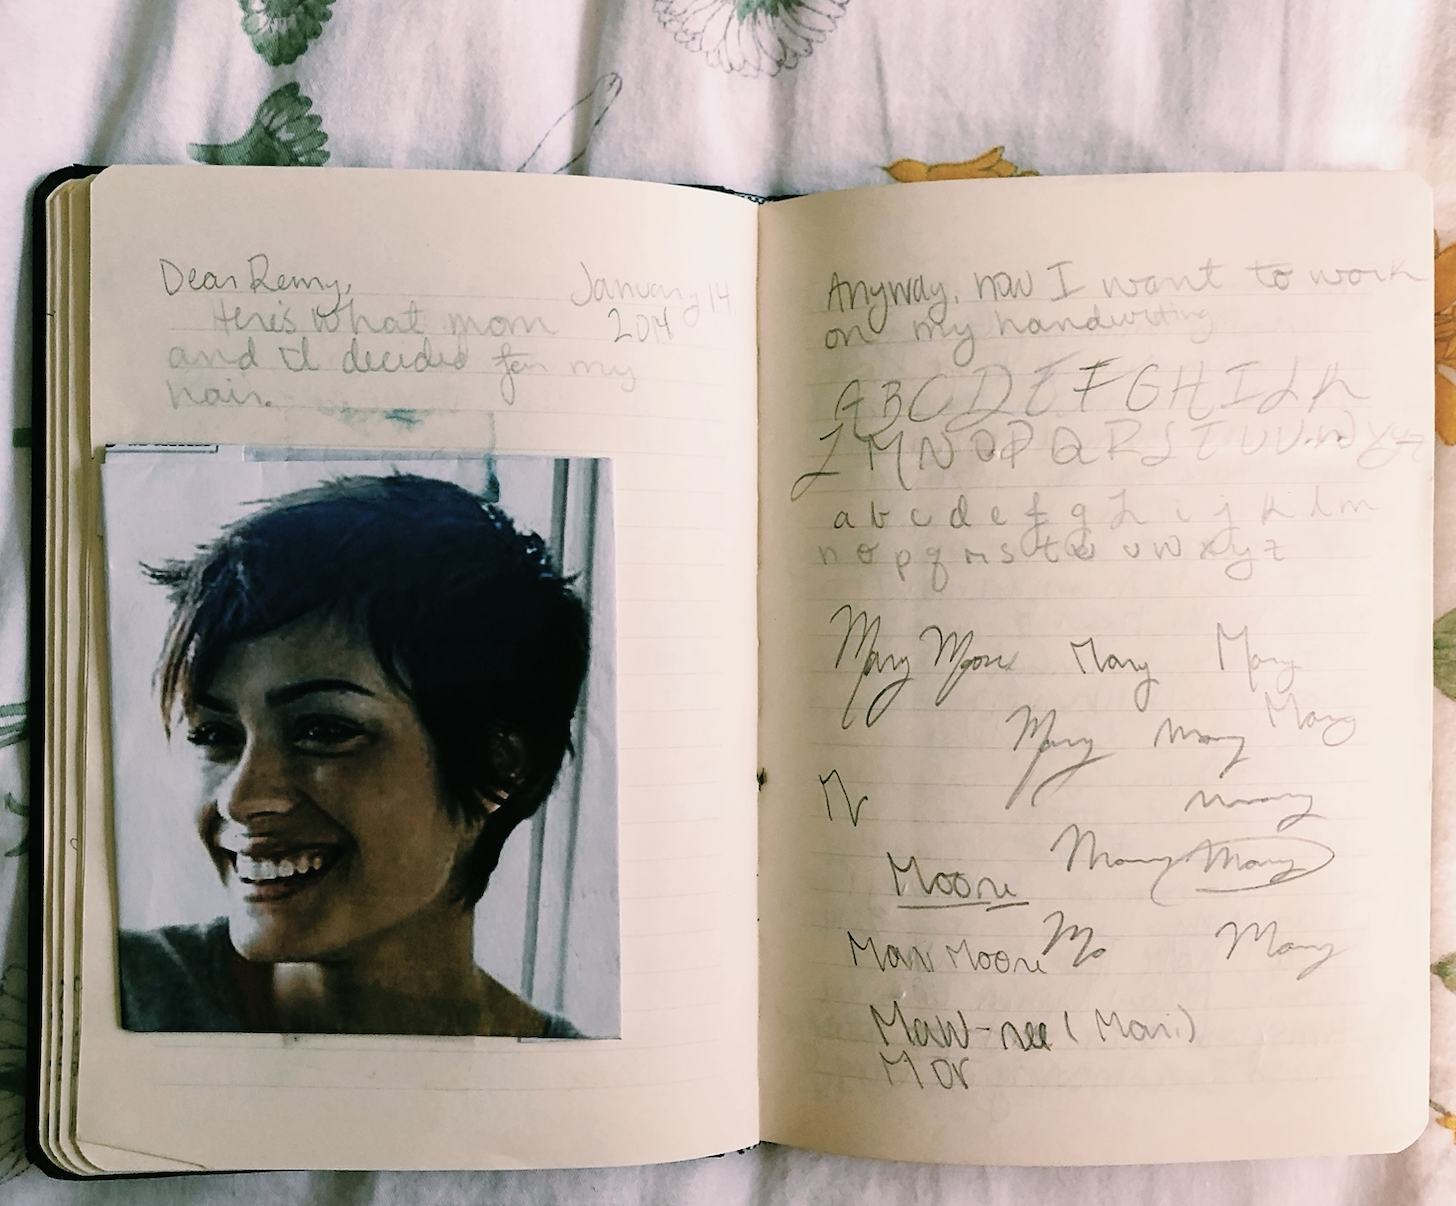 Dear Remy,
January 14,
2014
Here's what mom
and I decided for my
hair.
Anyway, now I want to work
on my handwriting
A B C D E F G H I J K
L M N O P Q R S T U V W X Y Z
a b c d e f g h i j k l m
n o p q r s t u v w x y z
Mary Moore Mary Mary
Mary
Mary Mary
Mary
Moore
Mary Mary
Moore Mo Mary
Maw-ree (Mari)
Mor